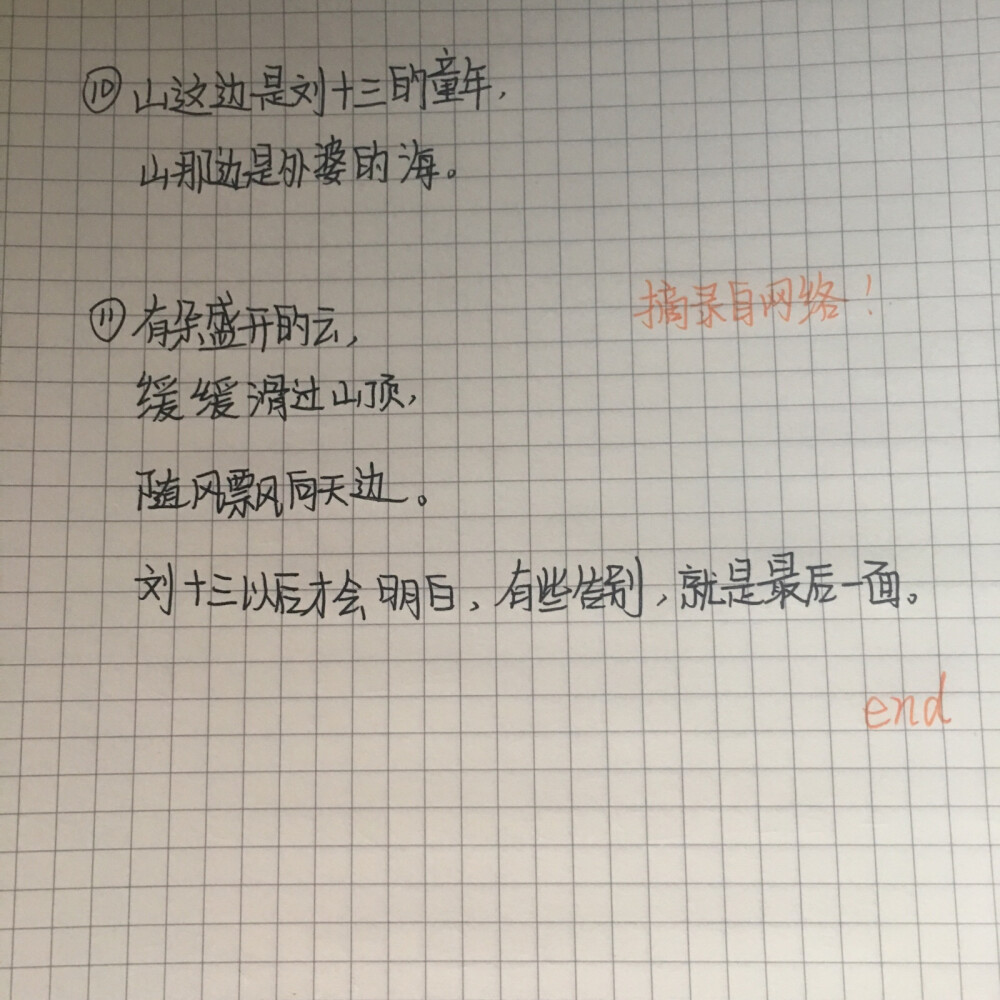 ⑩山这边是刘十三的童年,
山那边是外婆的海。
摘录自网络!
⑪有朵盛开的云,
缓缓滑过山顶,
随风飘向天边。
刘十三以后才会明白,有些告别,就是最后一面。
end